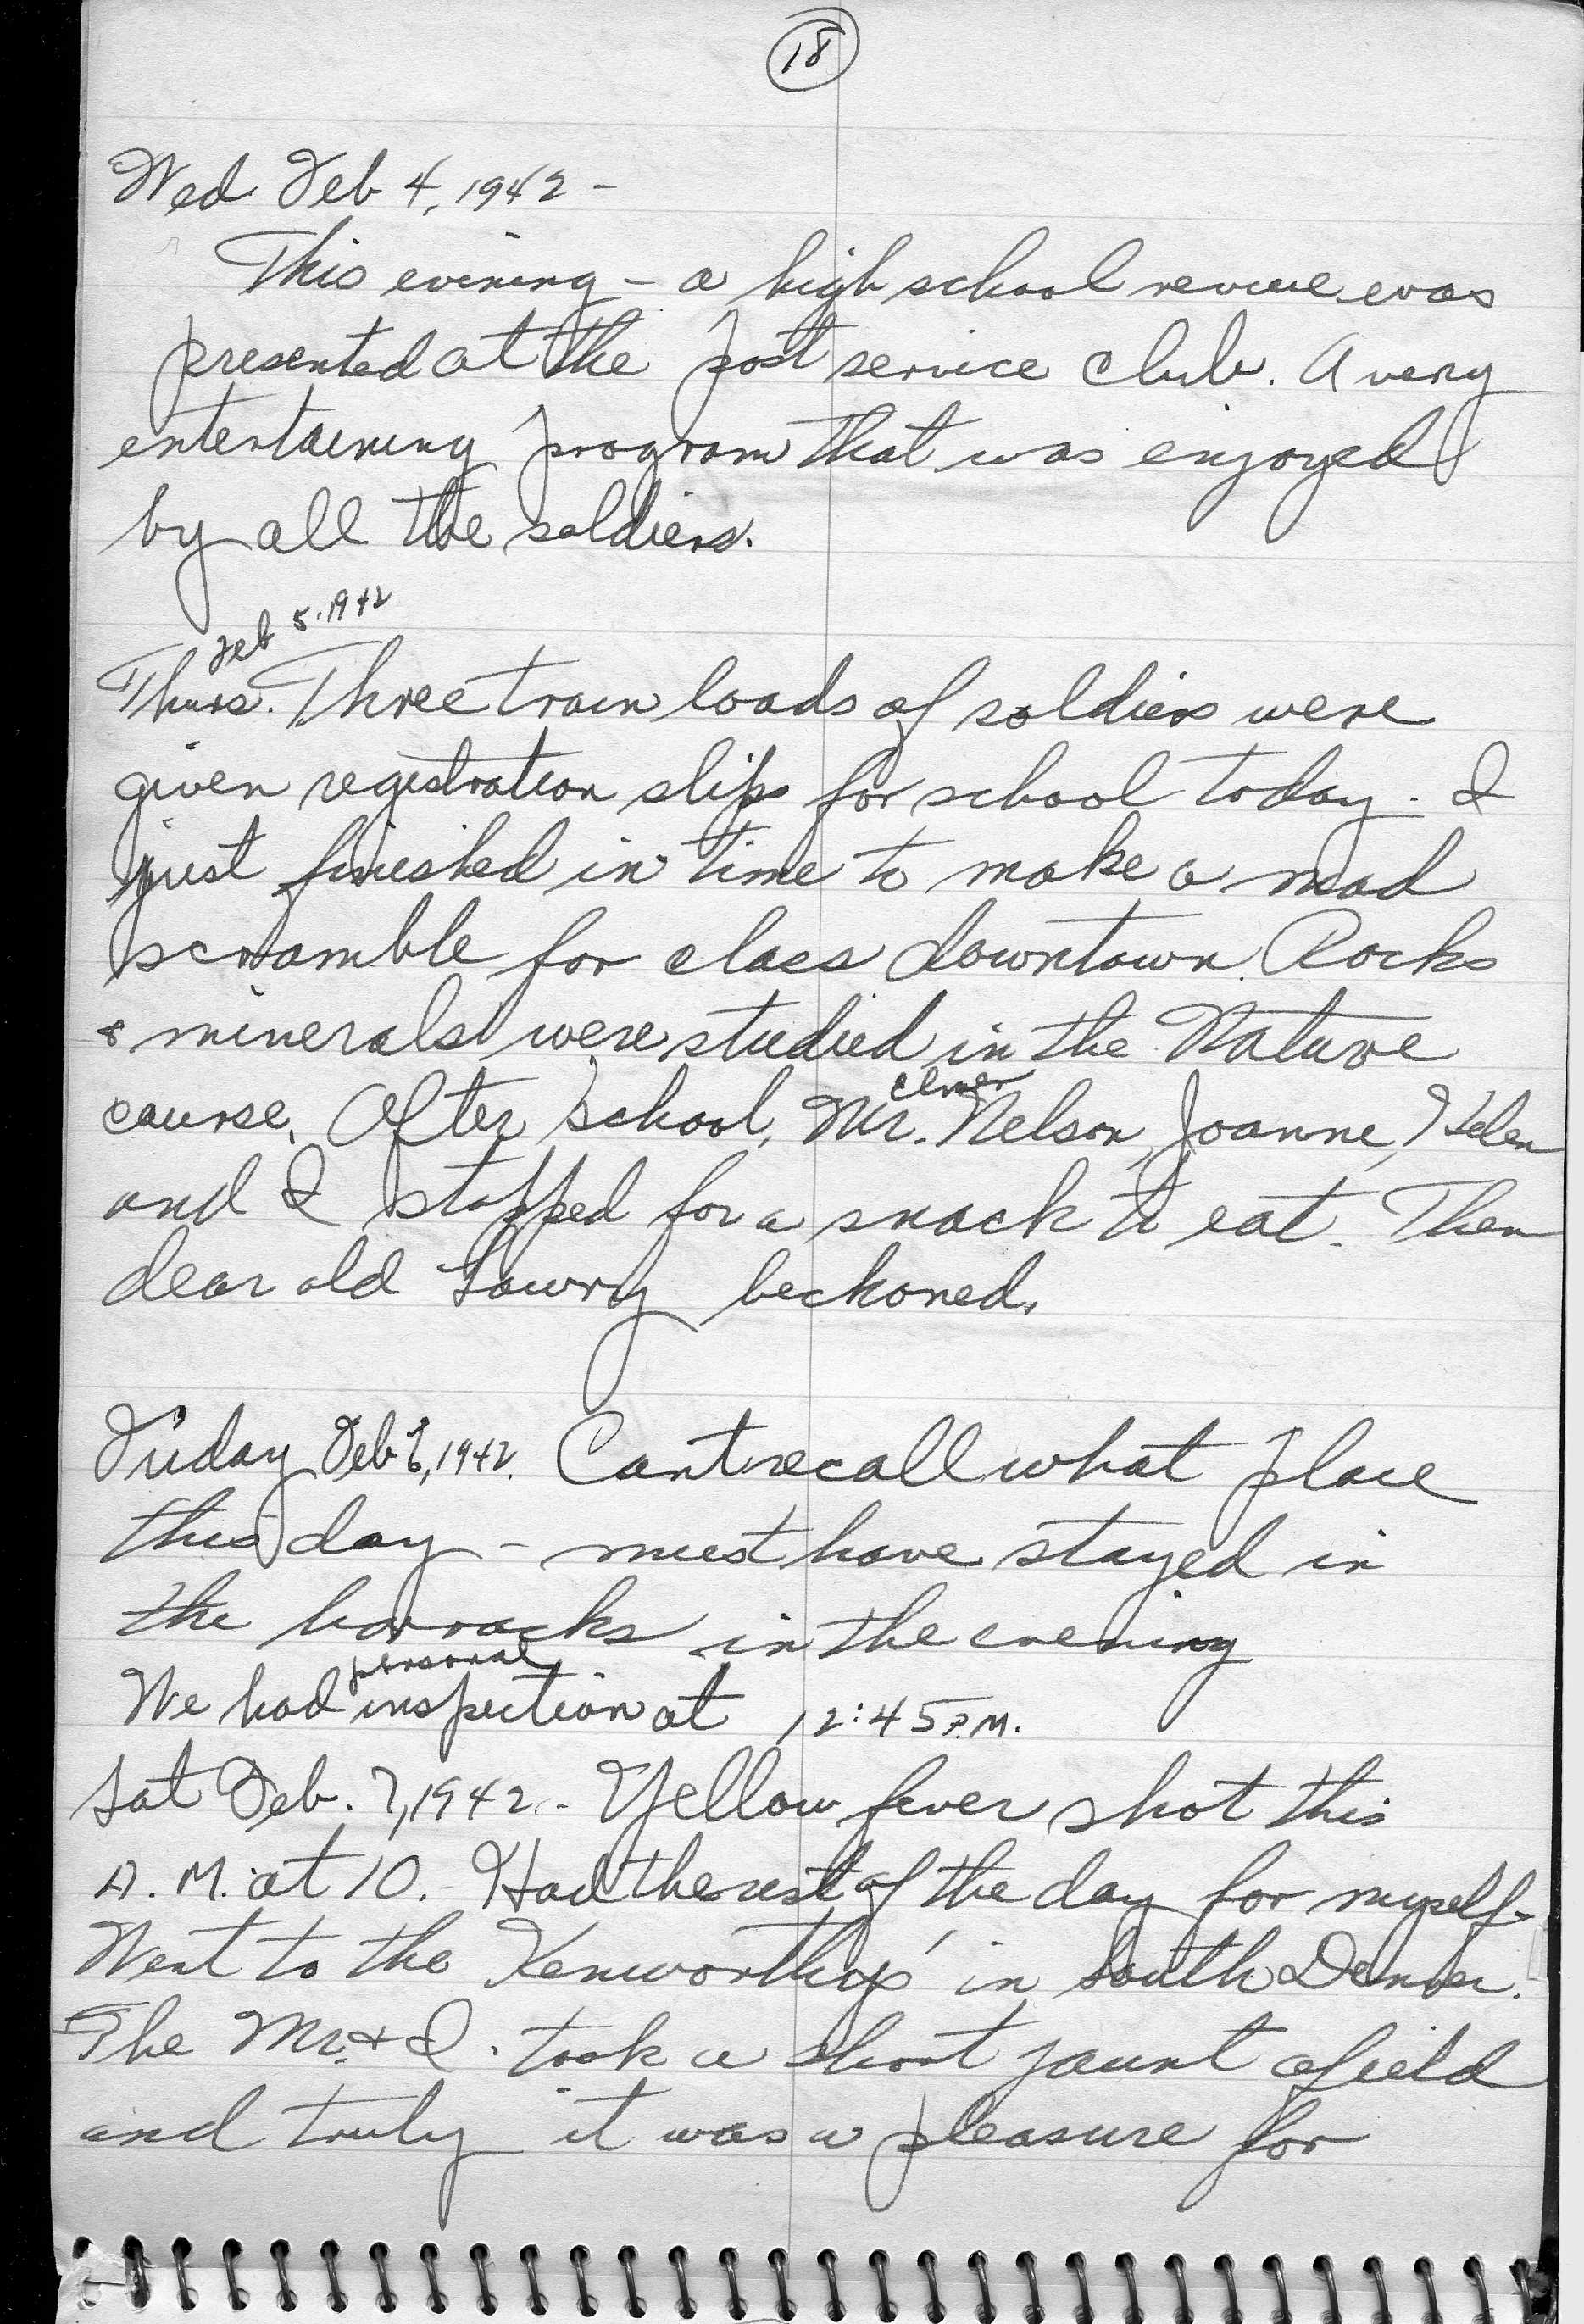 18
Wed. Feb 4, 1942 -
This evening - a high school revue was
presented at the post service club. A very
entertaining program that was enjoyed
by all the soldiers.
Feb 5. 1942
Thurs. Three train loads of soldiers were
given registration slips for school today. I
just finished in time to make a mad
scramble for class downtown. Rocks
& minerals were studied in the Nature
course. After school, Mr. Elmer Nelson, Joanne, Helen
and I stopped for a snack to eat. Then
dear old Lowry beckoned.
Friday Feb 6, 1942. Cant recall what place
this day - must have stayed in
the barracks in the evening
We had personal inspection at 12:45 P.M.
Sat Feb. 7, 1942. - Yellow fever shot this
A.M. at 10. Had the rest of the day for myself -
Went to the Kenworthys' in South Denver.
The Mr. & I. took a short jaunt afield
and truly it was a pleasure for